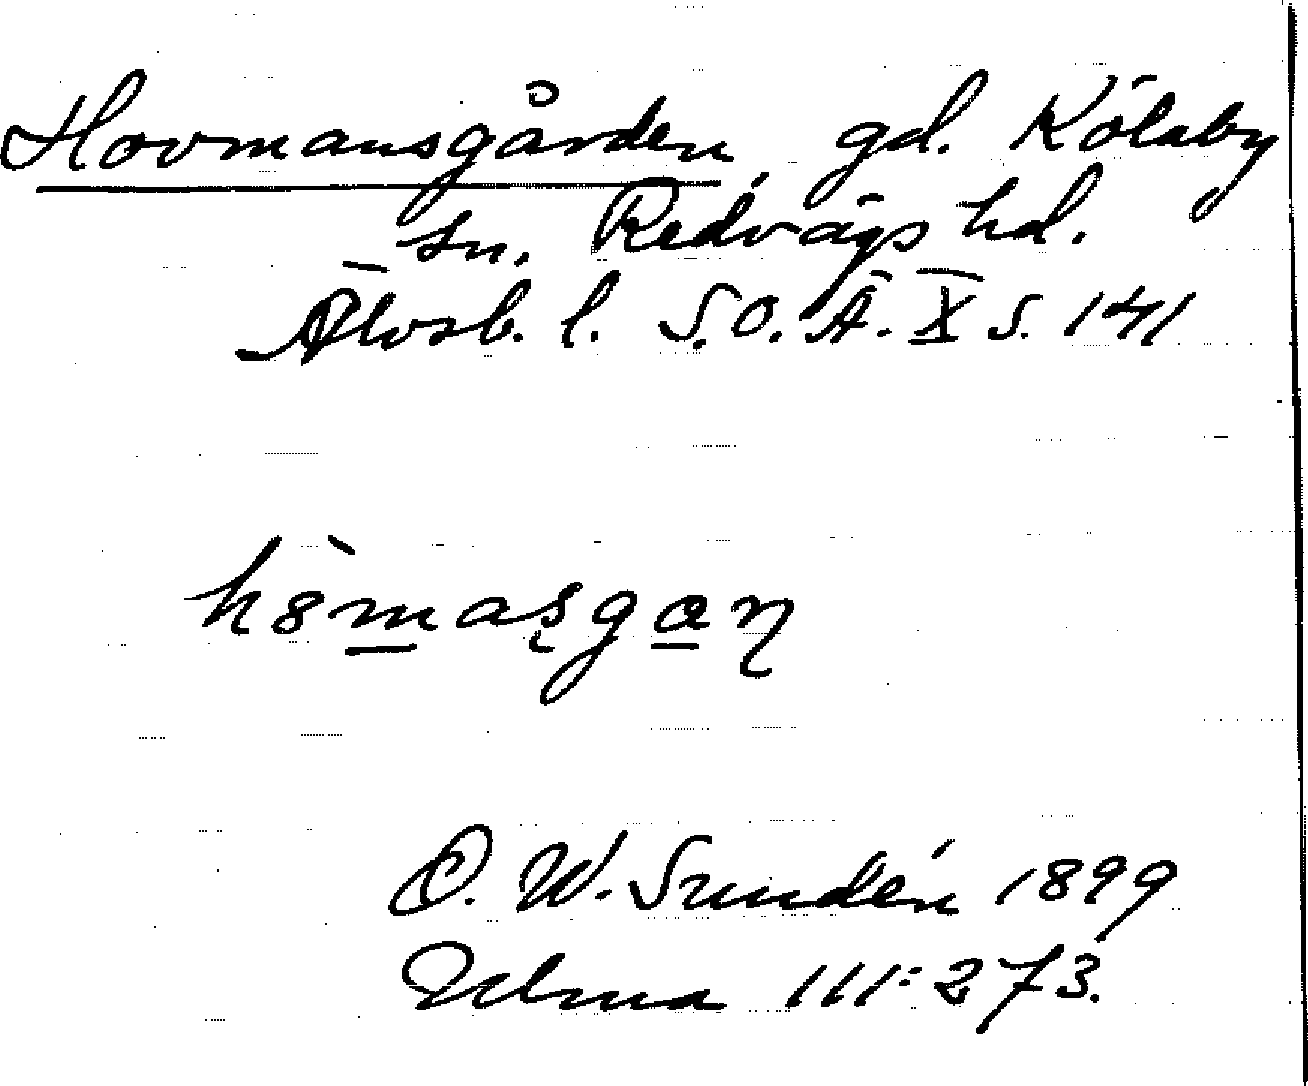 Hovmansgården, gd. Kölaby
sn. Redvägs hd.
Älvsb. l. S.O.Ä. X s. 141
O. W. Sundén 1899
111:273.